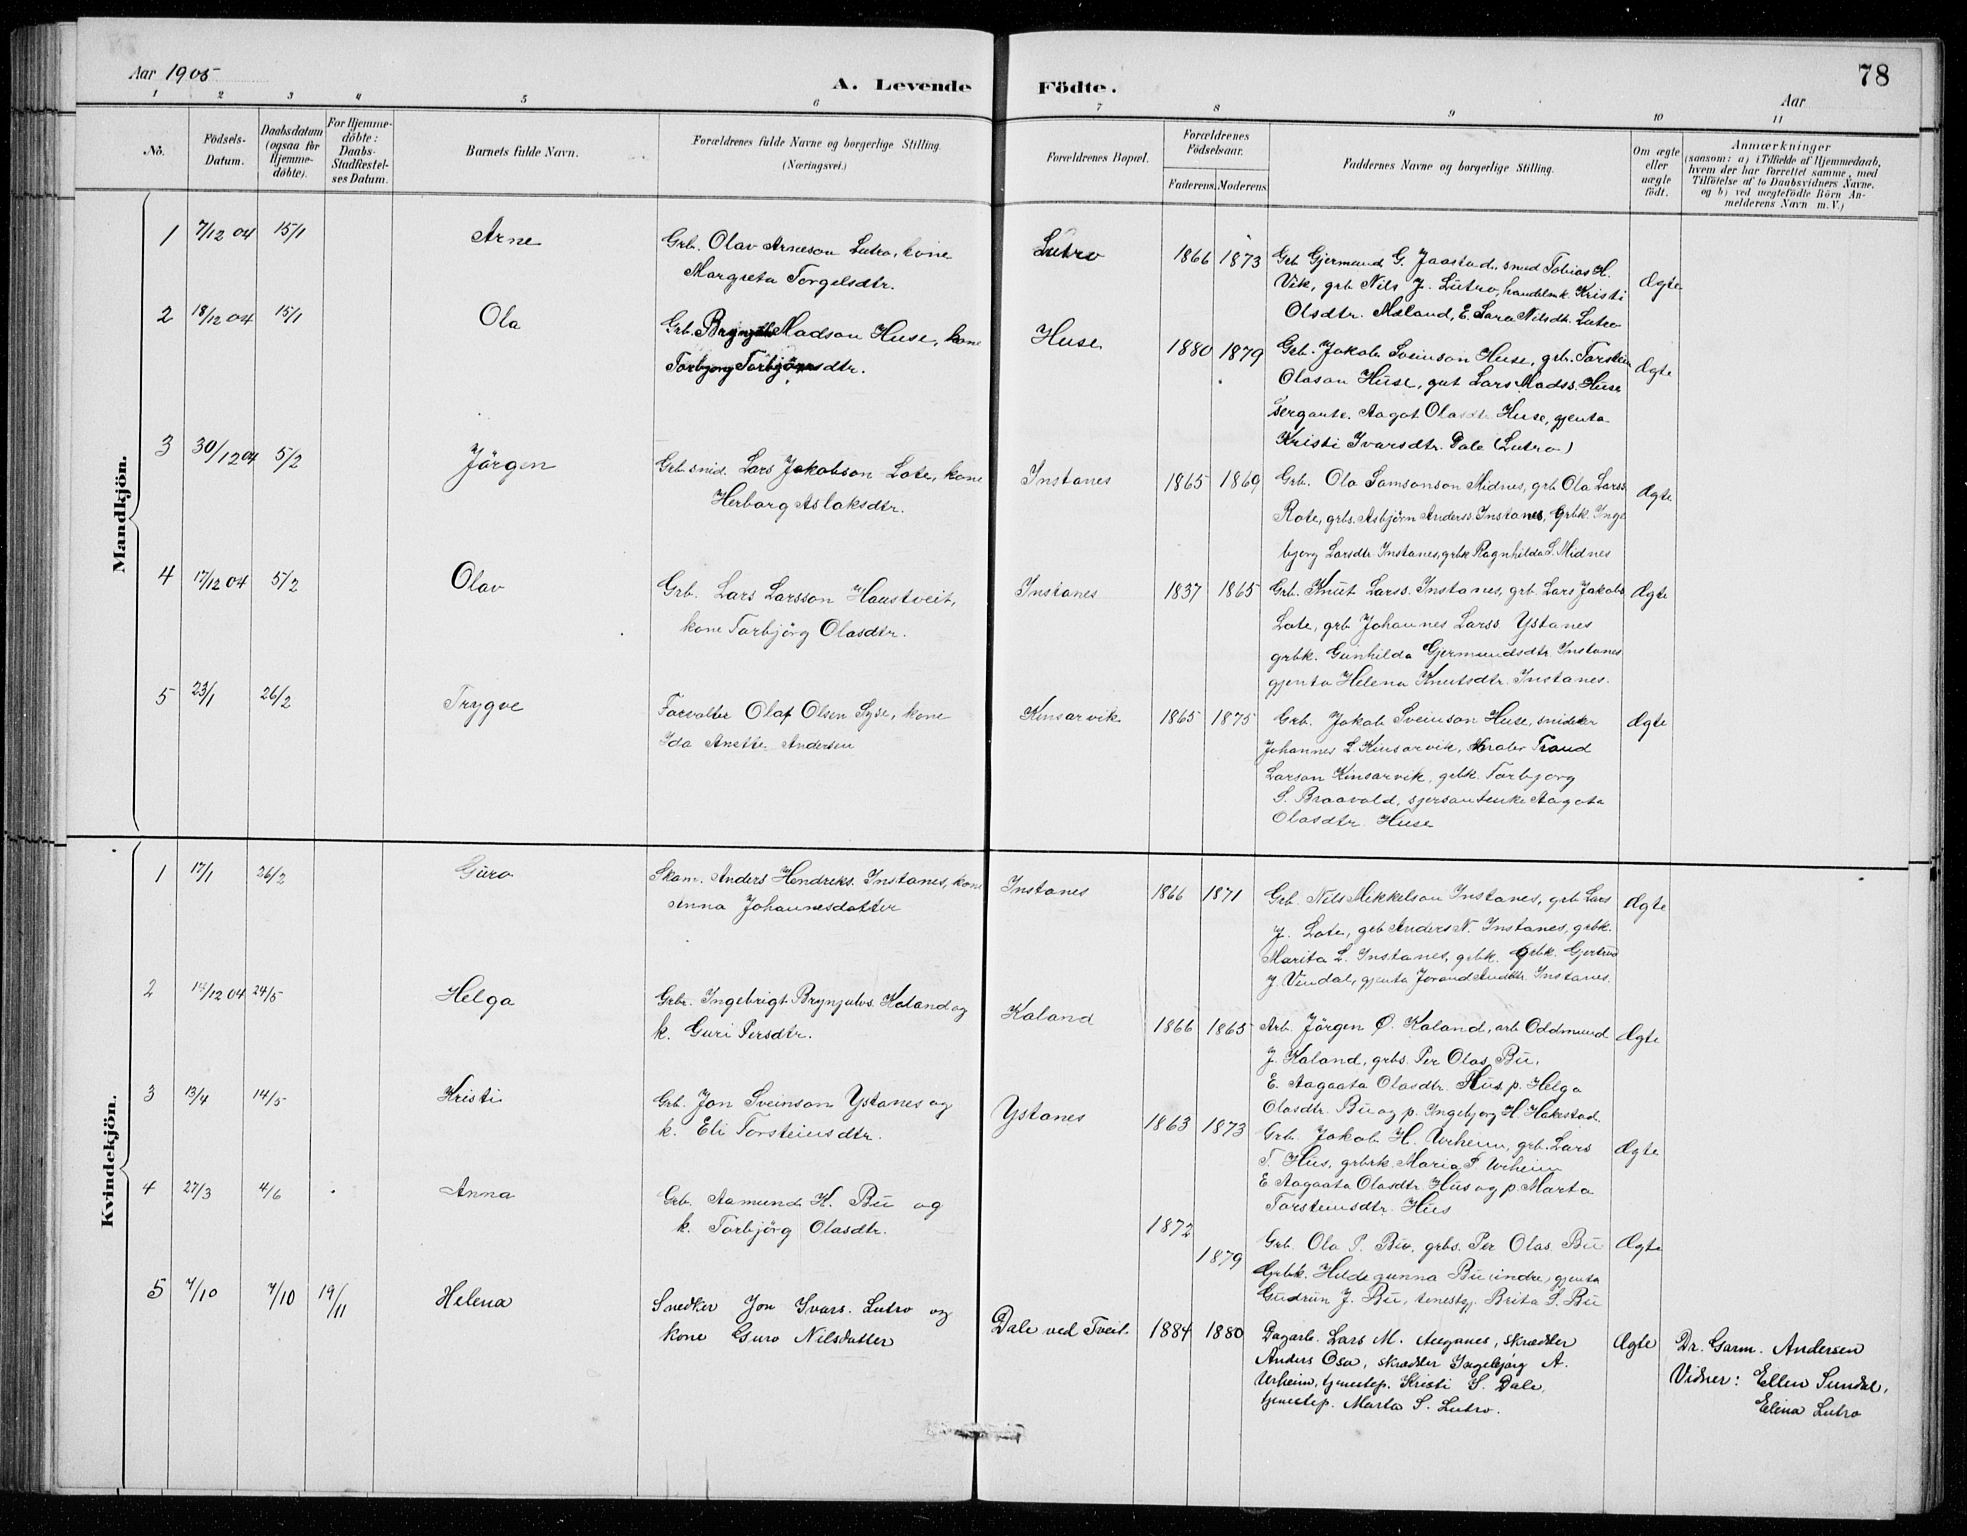 Aar 1905
A. Levende Födte.
78
Aar
1 2 3 4 5 6 7 8 9 10 11
No.
Födsels-Datum.
Daabsdatum (ogsaa for Hjemme-döbte).
For Hjemme-döbte: Daabs-Stadfæstel-ses Datum.
Barnets fulde Navn.
Forældrenes fulde Navne og borgerlige Stilling.
(Næringsvei.)
Forældrenes Bopæl.
Forældrenes Födselsaar.
Faderens. Moderens.
Faddernes Navne og borgerlige Stilling.
Om ægte eller uægte födt.
Anmærkninger
(saasom: a) i Tilfælde af Hjemmedaab,
hvem der har forrettet samme, med
Tilföielse af to Daabsvidners Navne,
og b) ved uægtefödte Börn An-
melderens Navn m. V.)
Mandkjön.
1 7/12 04 15/1 Arne
Grb. Olav Arneson Lutro, kone
Margreta Torgelsdtr.
Lutro 1866 1873
Grb Gjermund G. Jaastad, smed Tobias H.
Vik, grb Nils J. Lutro, handelsmk Kristi
Olsdtr. Mæland, E. Sara Nilsdt. Lutro
Ægte
2 18/12 04 15/1 Ola
Grb. Madson Huse, kone
Torbjorg Torbjörnsdtr.
Huse 1880 1879
Grb. Jakob Sveinson Huse, grb. Torstein
Olason Huse, gut Lars Madss. Huse
Sergante. Aagot Olasdt. Huse, gjenta
Kristi Ivarsdtr. Dale (Lutro)
Ægte
3 30/12 04 5/2 Jörgen
Grb. snid. Lars Jakobson Lote, kone
Herborg Aslaksdtr.
Instanes 1865 1869
Grb. Ola Samsonson Midnes, grb Ola Larss.
Rote, grbs. Asbjörn Anderss. Instanes, Grbk. Inge
bjorg Larsdtr Instanes, grbk Ragnhilda S. Midnes
Ægte
4 17/12 04 5/2 Olav
Grb. Lars Larsson Haustveit,
kone Torbjörg Olasdtr.
Instanes 1837 1865
Grb. Knut Larss. Instanes, grb. Lars Jakobs
Lote, grb Johannes Larss Ystanes
grbk. Gunhilda Gjermundsdtr. Instanes
gjenta Helena Knutsdtr. Instanes.
Ægte
5 23/1 26/2 Trygve
Forvalter Olaf Olsen Syse, kone
Ida Anette Andersen
Kinsarvik 1865 1875
Grb. Jakob Sveinson Huse, snideker
Johannes L. Kinsarvik, Maaler Traud
Larson Kinsarvik, grbk. Torbjorg
S. Braavold, sjersantenke Aagota
Olasdtr. Huse
Ægte
Kvindekjön.
1 17/1 26/2 Guro
Skom. Anders Hendreks. Instanes, kone
Anna Johannesdatter
Instanes 1866 1871
Grb. Nils Mikkelson Instanes, grb Lars
J. Lote, grb Anders N. Instanes, grbk.
Marita L. Instanes, grbk. Grbk. Gjertrud
J. Vendal, gjenta Jorand Andsdtr Instanes.
Ægte
2 /12 04 24/5 Helga
Grbr. Ingebrigt Brynjulvs. Kaland og
k. Guri Persdtr.
Kaland 1866 1865
Arb. Jörgen O. Kaland, arb Oddmund
J. Kaland, grbs. Per Olas. Bu.
E. Aagaata Olasdtr. Hus, p. Helga
Olasdtr. Bu og p. Ingebjorg H. Hakestad.
Ægte
3 13/4 14/5 Kristi
Grb. Jon Sveinson Ystanes og
k. Eli Torsteinsdtr.
Ystanes 1863 1873
Grb. Jakob H. Urheim, grb. Lars
T. Hus, grbrk. Maria P. Urheim
E Aagaata Olasdtr. Hus og p. Marta
Torsteinsdtr. Hus
Ægte
4 27/3 4/6 Anna
Grb. Aamund H. Bu og
k. Torbjörg Olasdtr.
1872 1879
Grb. Ola P. Bu, grbs. Per Olas. Bu
Grbk. Hildegunna Bu (indre) gjenta
Gudrun J. Bu, tenestgj. Brita S. Bu
Ægte
5 7/10 7/10 19/11 Helena
Snedker Jon Ivars. Lutro og
kone Guro Nilsdatter
Dale ved Tveit. 1884 1880
Dagarb. Lars M. Aeganes, skrædder
Anders Osa, skrædder Ingebjörg A.
Urheim, tjenestep. Kristi S. Dale,
tjenestep. Marta S. Lutro.
Ægte
Dr. Garm. Andersen
Vidner: Ellen Sundal,
Elina Lutro